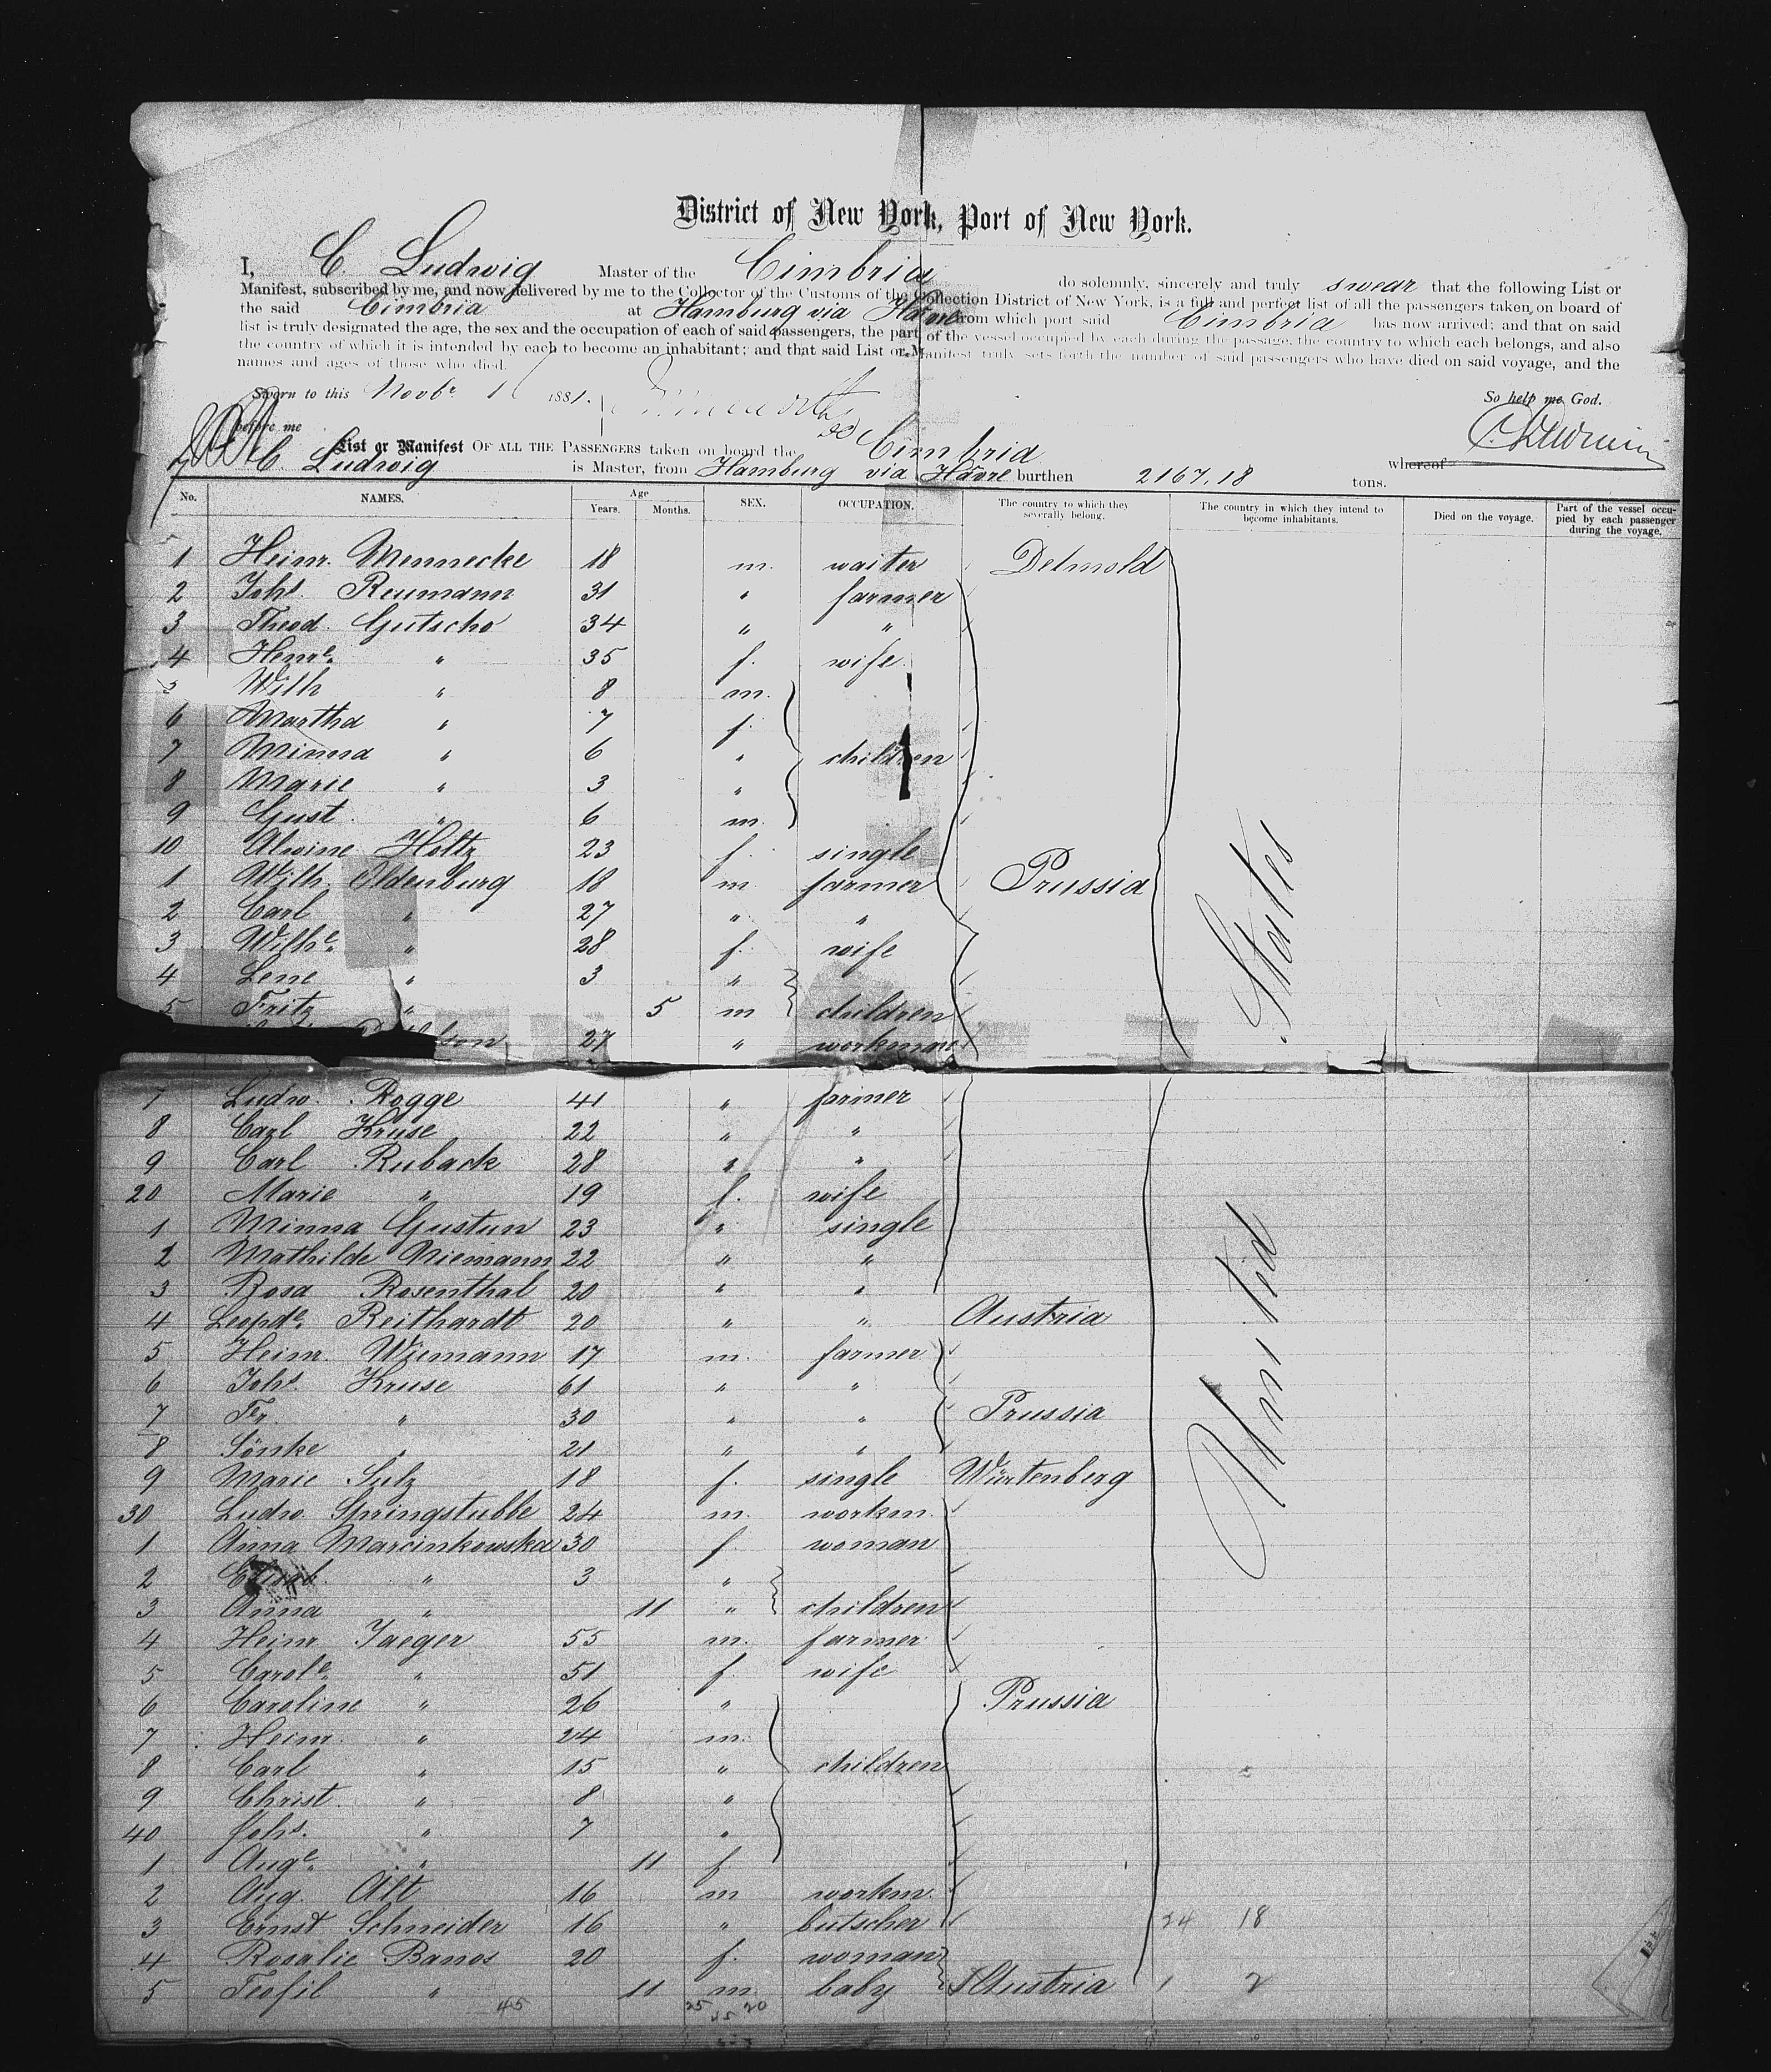 District of New York, Port of New York.
I, C. Ludwig Master of the Cimbria do solemnly, sincerely and truly swear that the following List or
Manifest, subscribed by me, and now delivered by me to the Collector of the Customs of the Collection District of New York, is a full and perfect list of all the passengers taken on board of
the said Cimbria at Hamburg via Havre from which port said Cimbria has now arrived; and that on said
list is truly designated the age, the sex and the occupation of each of said passengers, the part of the vessel occupied by each during the passage, the country to which each belongs, and also
the country of which it is intended by each to become an inhabitant; and that said List or Manifest truly sets forth the number of said passengers who have died on said voyage, and the
names and ages of those who died.
So help me God.
Sworn to this Novbr 1 1881.
before me
List or Manifest OF ALL THE PASSENGERS taken on board the Cimbria
whereof
C. Ludwig is Master, from Hamburg via Havre burthen 2167,18 tons.
No. NAMES. Age Years. Months. SEX. OCCUPATION. The country to which they severally belong. The country in which they intend to become inhabitants. Died on the voyage. Part of the vessel occupied by each passenger during the voyage.
1 Heinr. Mennecke 18 m. waiter Detmold
2 Johs. Reumann 31 " farmer
3 Theod. Gutscho 34 " "
4 Henre. " 35 f. wife
5 Wilh " 8 m.
6 Martha " 7 f.
7 Minna " 6 " children
8 Marie " 3 "
9 Gust. " 6 m.
10 Alwine Holtz 23 f. single
1 Wilh. Oldenburg 18 m farmer Prussia
2 Carl " 27 " "
3 Wilhe. " 28 f. wife
4 Lene " 3 "
5 Fritz " 5 m children
27 " workman
7 Ludw. Rogge 41 " farmer
8 Carl Kruse 22 " "
9 Carl Ruback 28 " "
20 Marie " 19 f. wife
1 Minna Gustun 23 " single
2 Mathilde Niemann 22 " "
3 Rosa Rosenthal 20 " "
4 Leopde. Reithardt 20 " " Austria
5 Heinr. Wiemann 17 m. farmer
6 Johs. Kruse 61 " "
7 Fr. " 30 " " Prussia
8 Sönke " 21 " "
9 Marie Sulz 18 f. single Würtenberg
30 Ludw. Springstubbe 24 m. workm.
1 Anna Marcinkowska 30 f woman
2 " 3 "
3 Anna " 11 " children
4 Heinr. Jaeger 55 m. farmer
5 Carole. " 51 f. wife
6 Caroline " 26 " Prussia
7 Heinr. " 24 m.
8 Carl " 15 " children
9 Christ. " 8 "
40 Johs. " 7 "
1 Auge. " 11 f
2 Aug. Alt 16 m workm.
3 Ernst Schneider 16 " butscher 24 18
4 Rosalie Banos 20 f. woman
5 Teofil " 11 m. baby Austria 1 2
45 25 20
United States